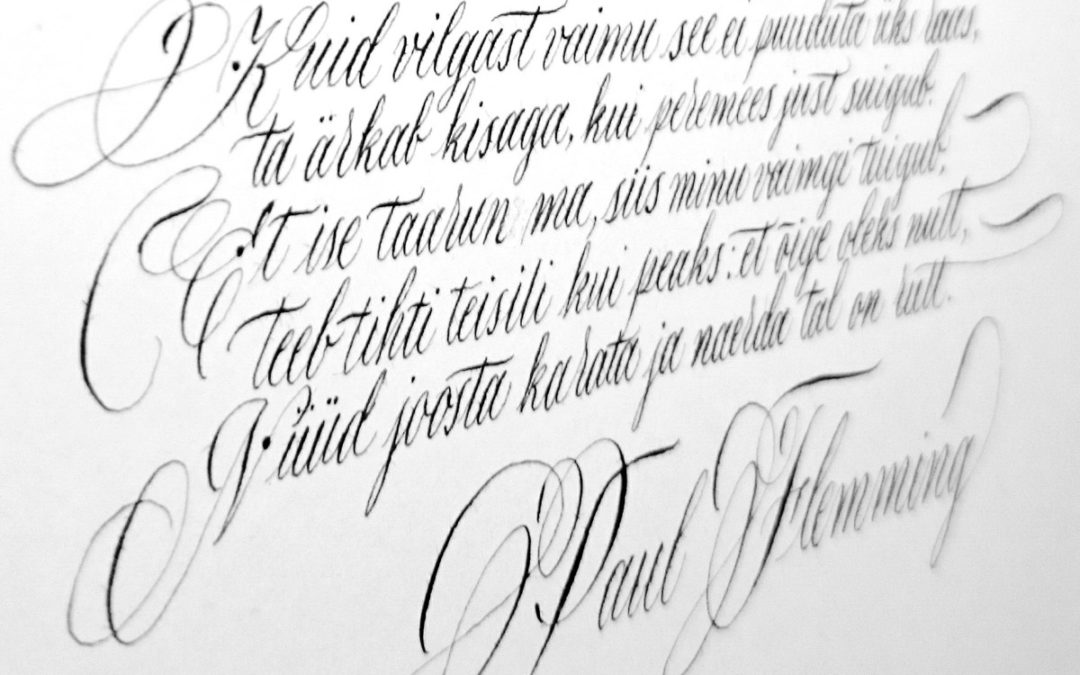 Kuid vilgast vaimu see ei puuduta üks raas,
ta ärkab kisaga, kui peremees just suigub.
Et ise taarun ma, siis minu vaimgi tuigub,
teeb tihti teisili kui peaks: et õige oleks nutt,
Nüüd joosta karata ja naerda tal on rutt.
Paul Flemming